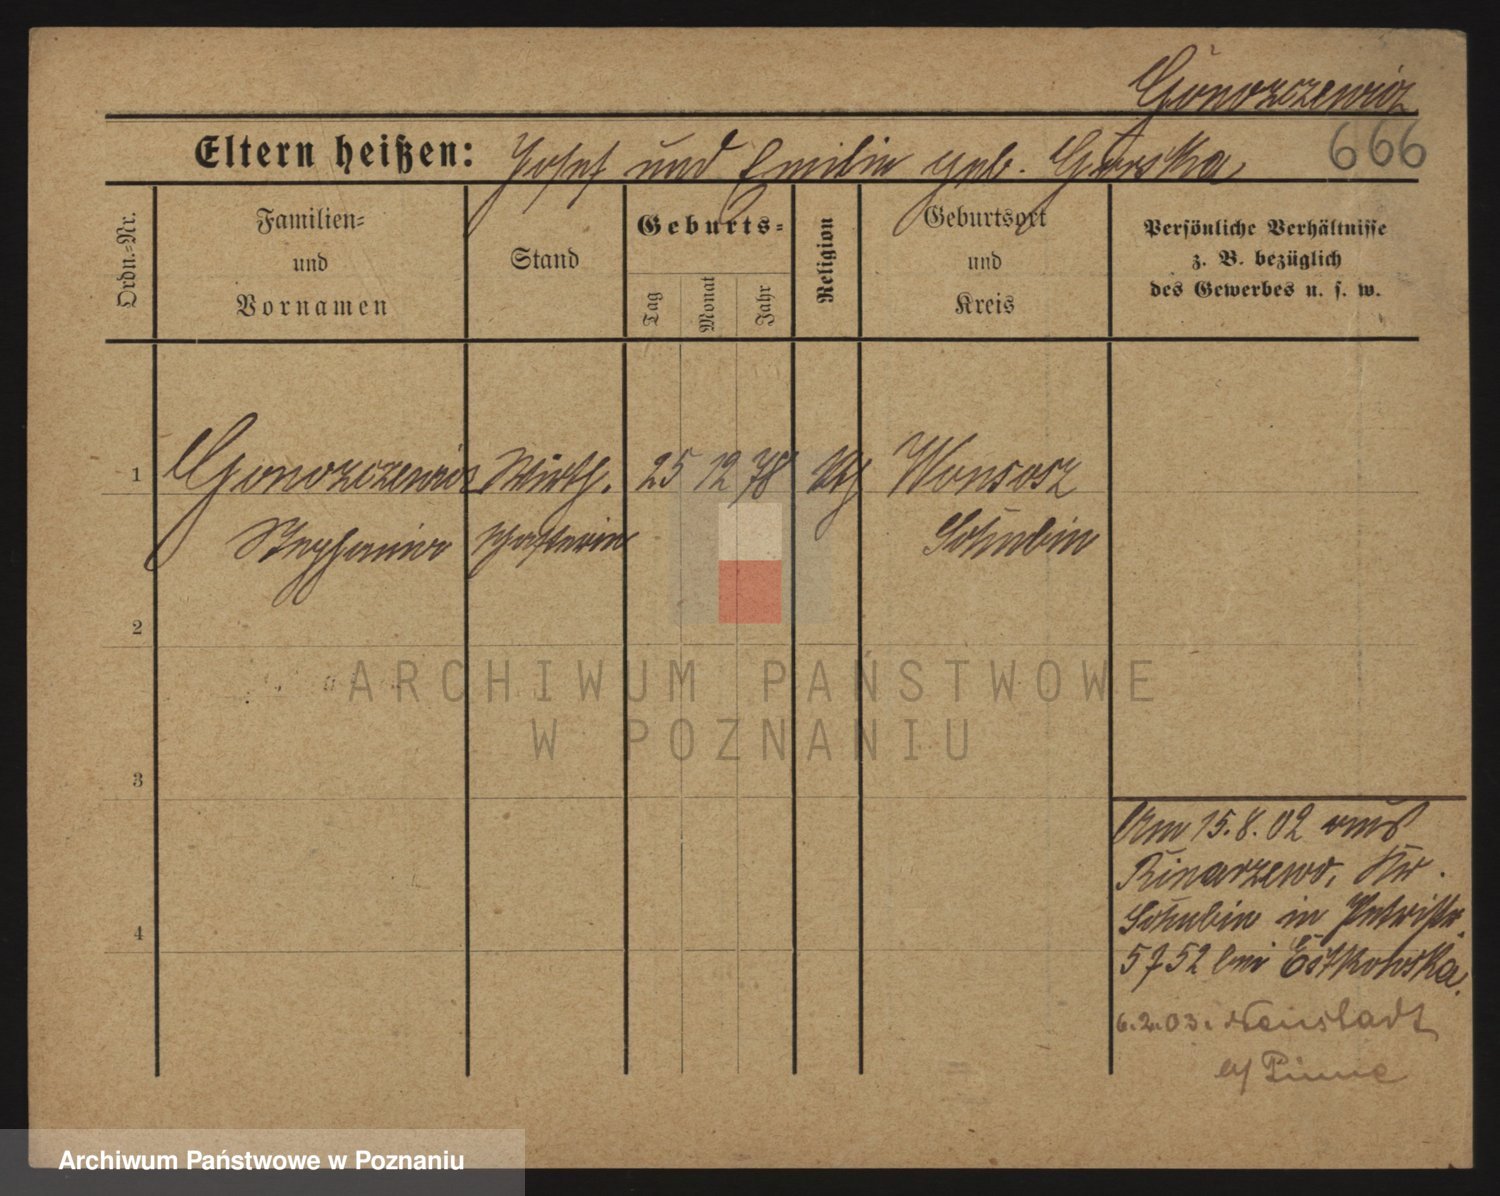 Gonorzewicz
Eltern heißen: Josef und Emilie geb. Gurska
666
Ordn.=Nr.
Familien=
und
Vornamen
Stand
Geburts=
Tag
Monat
Jahr
Religion
Geburtsort
und
Kreis
Persönliche Verhältnisse
z. B. bezüglich
des Gewerbes u. s. w.
1 Wirth. 25 12 78 Wonsosz
Stephanie schafterin Schubin
2
3
4
Am 15.8.02 aus
Rinarzewo, Kr.
Schubin in Petristr.
5752 bei
6.2.03. Neustadt
b/ Pinne
ARCHIWUM PAŃSTWOWE
W POZNANIU
Archiwum Państwowe w Poznaniu